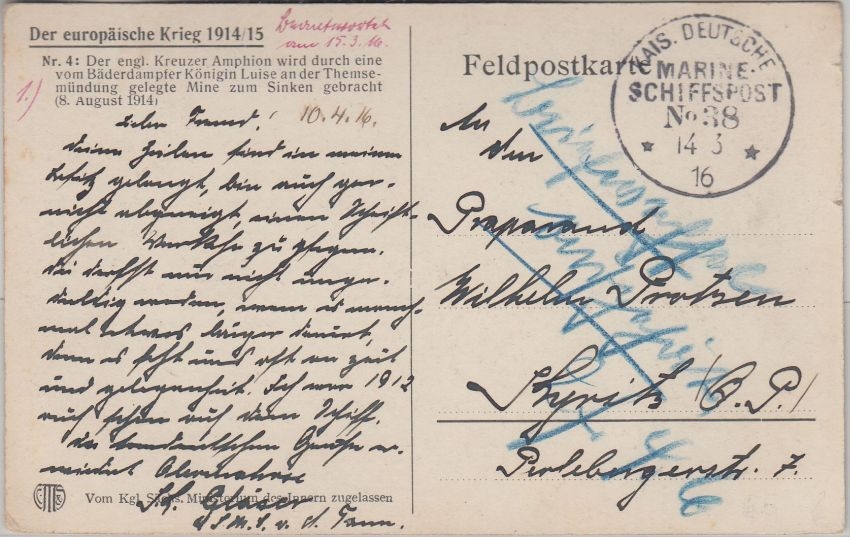 Der europäische Krieg 1914/15
Beantwortet
am 15.3.16.
Nr. 4: Der engl. Kreuzer Amphion wird durch eine
vom Bäderdampfer Königin Luise an der Themse-
mündung gelegte Mine zum Sinken gebracht
(8. August 1914)
1.)
Lieber Freund! 10.4.16.
Deine Zeilen sind in meinen
Besitz gelangt, bin auch gar-
nicht abgeneigt, einen Schrift-
lichen Verkehr zu pflegen.
Du darfst nur nicht unge-
duldig werden, wenn es manch-
mal etwas länger dauert,
denn es fehlt uns oft an Zeit
und Gelegenheit. Ich war 1912
auch schon auf dem Schiff.
Die Grüße er-
widert
Glaser
S.M.S. v. d. Tann.
Vom Kgl. Sächs. Ministerium des Innern zugelassen
Feldpostkarte
KAIS. DEUTSCHE
MARINE-
SCHIFFSPOST
No 38
* 14 3 *
16
An
den
Präparand
Wilhelm Protzen
Kyritz (O.P.)
Perlebergerstr. 7.